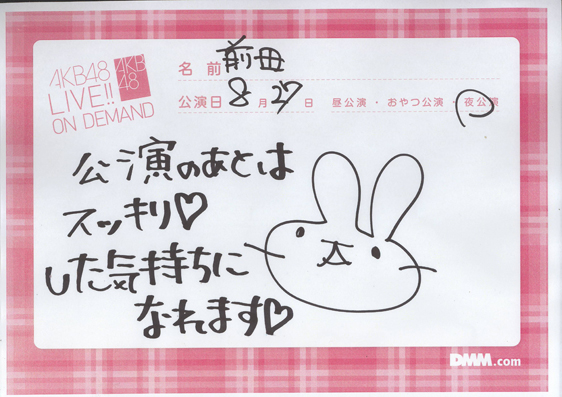 AKB48
LIVE!!
ON DEMAND
AKB
48
名前 前田
公演日 8月27日 昼公演・おやつ公演・夜公演
公演のあとは
スッキリ♡
した気持ちに
なれます♡
DMM.com